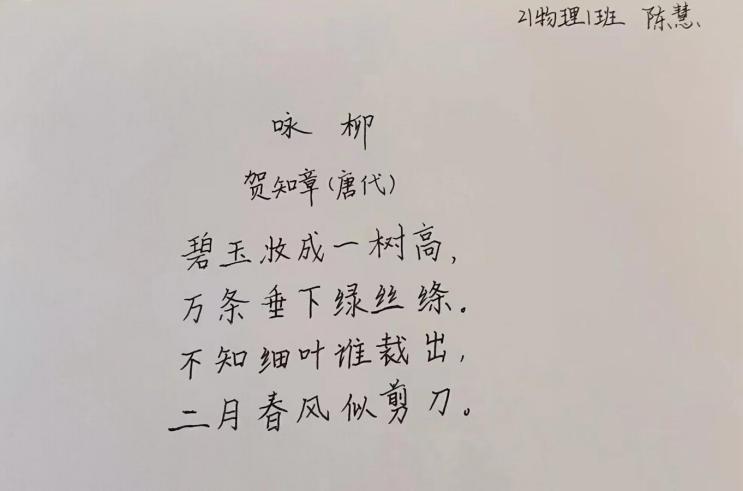 21物理1班 陈慧
咏柳
贺知章(唐代)
碧玉妆成一树高,
万条垂下绿丝绦。
不知细叶谁裁出,
二月春风似剪刀。